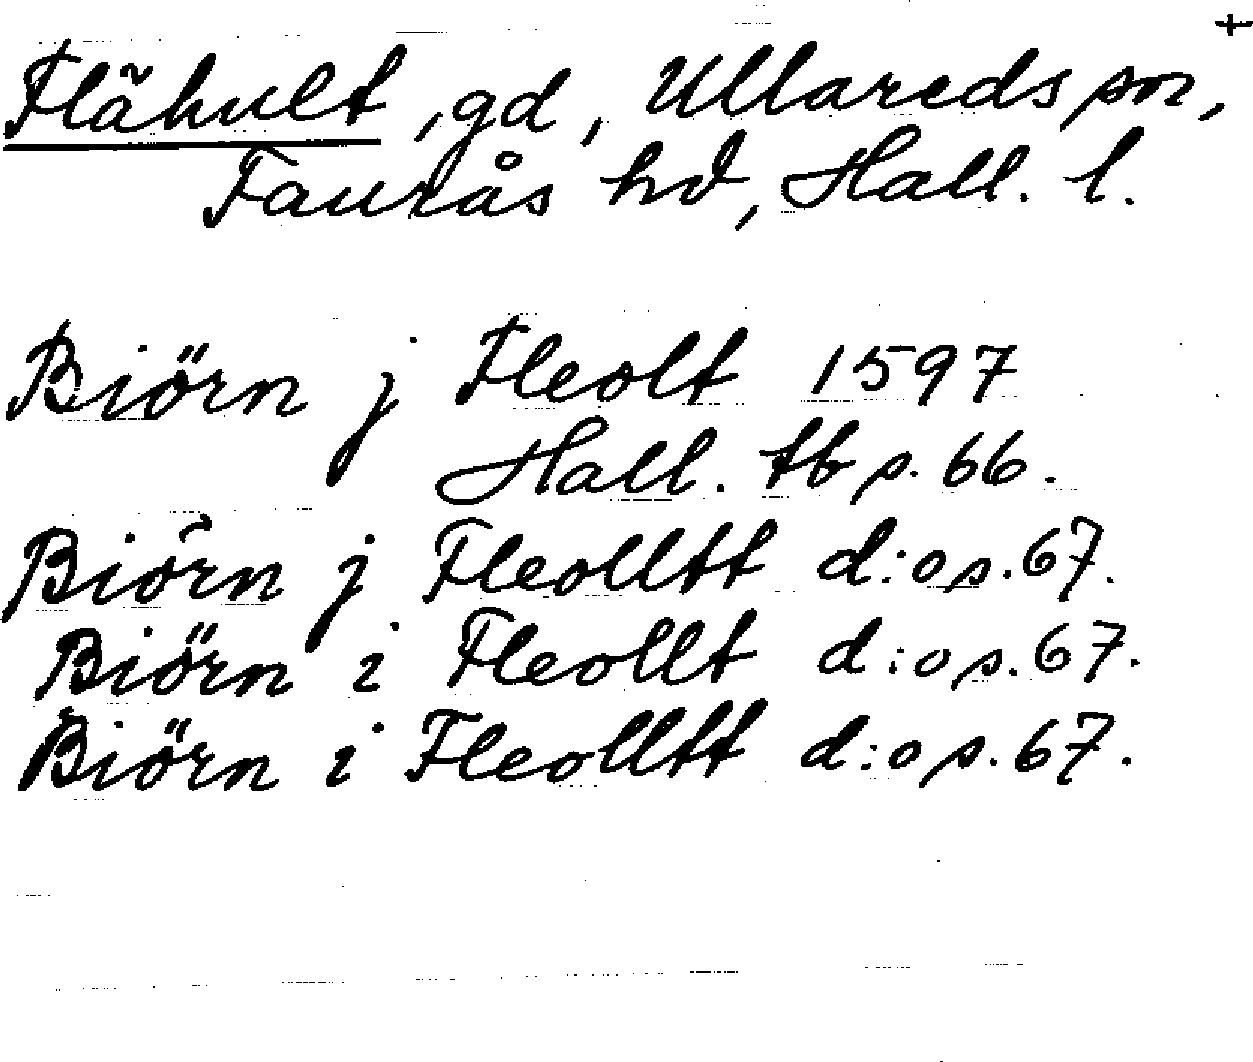 +
Flähult, gd, Ullareds sn,
Faurås hd, Hall. l.
Biörn j Fleolt 1597
Hall. tb s. 66.
Biörn j Fleolltt d:o s. 67.
Biörn i Fleollt d:o s. 67.
Biörn i Fleolltt d:o s. 67.